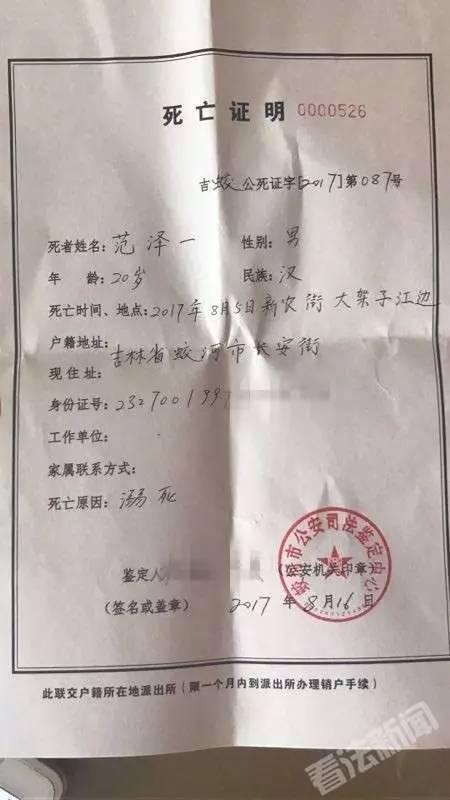 死亡证明 0000526
吉蛟公死证字[2017]第087号
死者姓名：范泽一 性别：男
年 龄：20岁 民族：汉
死亡时间、地点：2017年8月5日新农街大架子江边
户籍地址：吉林省蛟河市长安街
现住址：
身份证号：2327001997
工作单位：
家属联系方式：
死亡原因：溺死
鉴定人
（公安机关印章）
蛟河市公安司法鉴定中心
（签名或盖章） 2017年8月16日
此联交户籍所在地派出所（限一个月内到派出所办理销户手续）
看法新闻